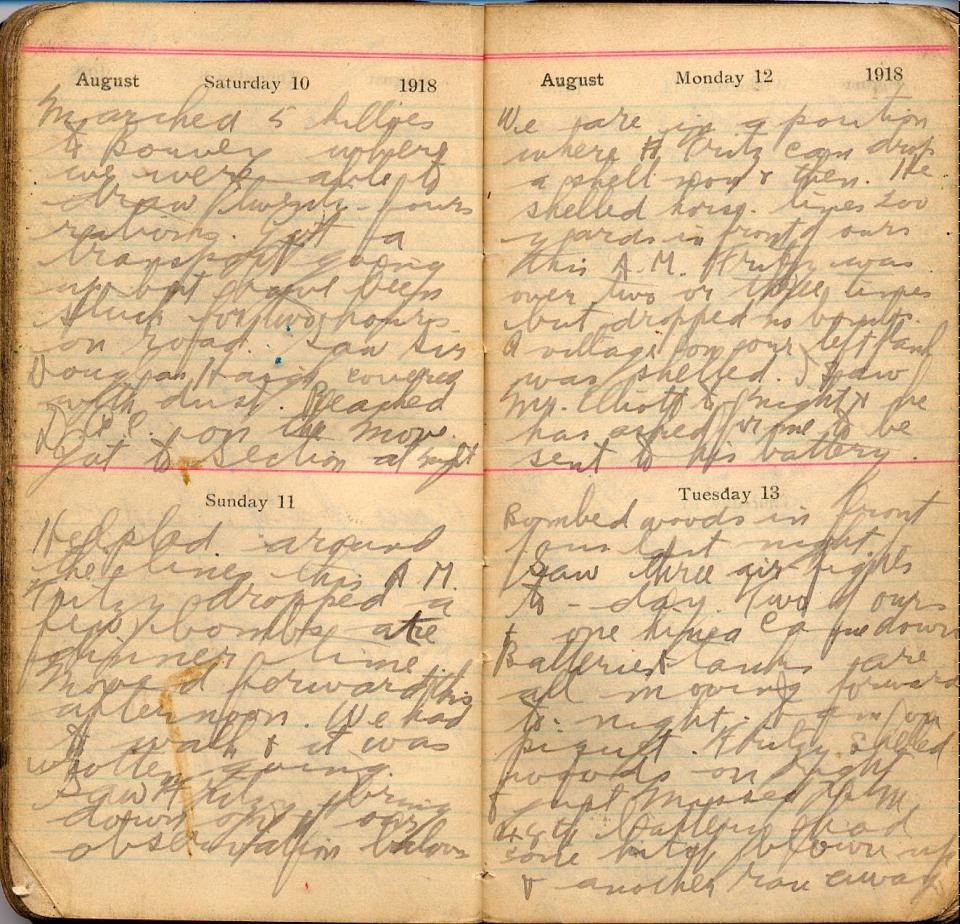 August Saturday 10 1918
Marched 5 killies
to Bouvey where
we were able to
draw twenty-four
rations. Got a
transport going
up but have been
stuck for two hours
on road. Saw Sir
Douglas Haigh covered
with dust. Reached
D.A.C. on the move.
Got to section at night
Sunday 11
Helped around
the lines this A.M.
Fritzy dropped a
few bombs at
dinner time.
Moved forward this
afternoon. We had
to walk & it was
rotten going.
Saw Fritzy bring
down one of our
observation baloons
August Monday 12 1918
We are in a position
where Fritz can drop
a shell now & then. He
shelled horse lines 200
yards in front of ours
this A.M. Fritzy was
over two or three times
but dropped no bombs.
A village on our left flank
was shelled. I saw
Mr. Elliott to-night & he
has asked for me to be
sent to his battery.
Tuesday 13
Bombed woods in front
of us last night.
Saw three air fights
to-day. Two of ours
& one came down
Batteries & tanks are
all moving forward
to-night. I am on
piquet. Fritzy shelled
woods on right
& just missed them.
battery had
some blown up
& another ran away